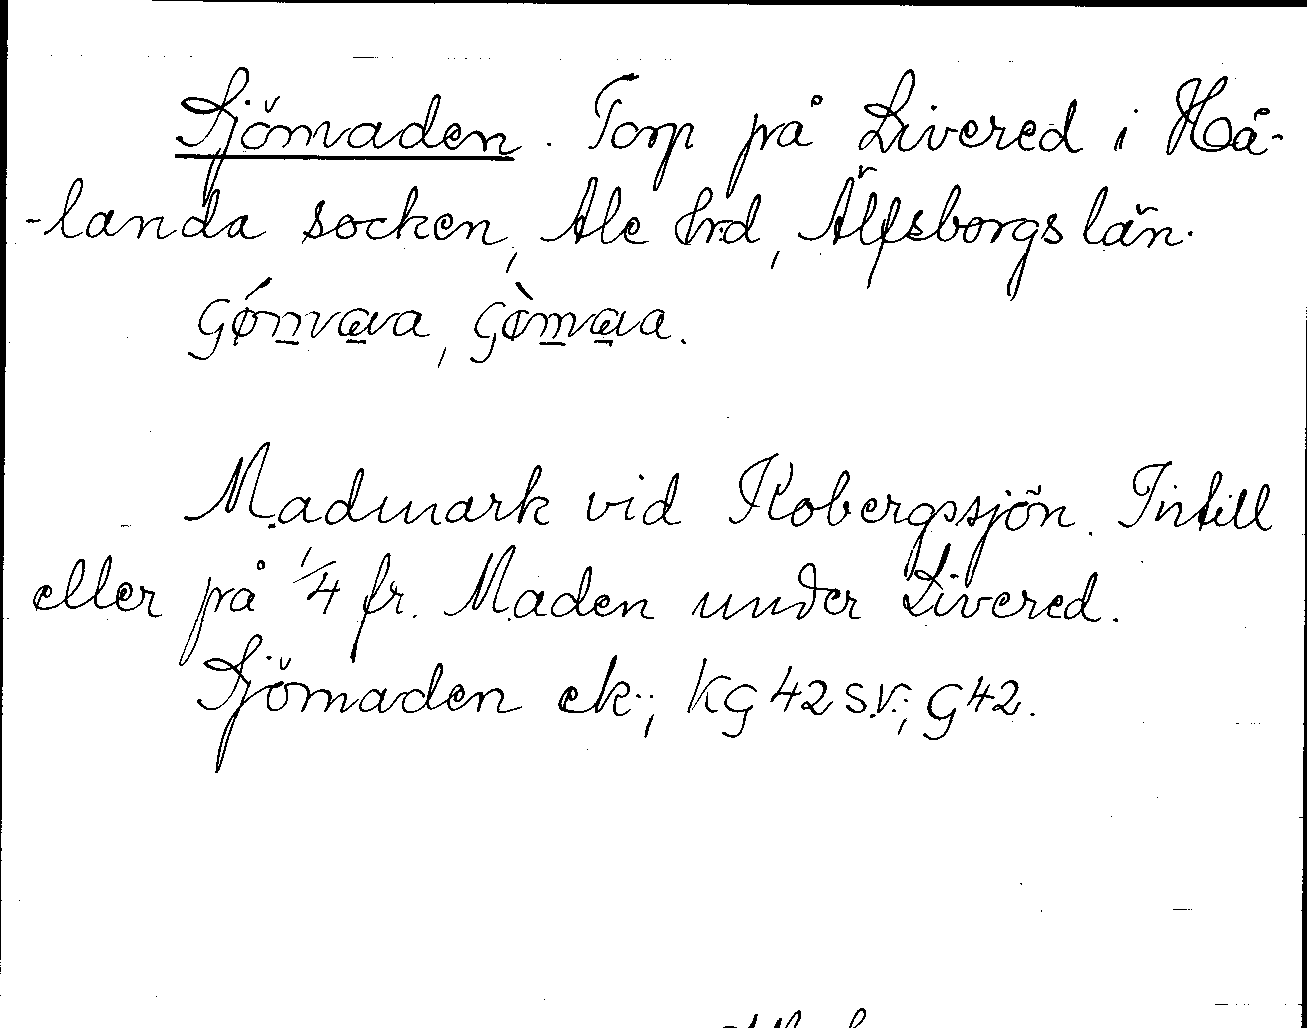 Sjömaden. Torp på Livered i Hå-
-landa socken, Ale hrd, Älfsborgs län.
Madmark vid Kobergssjön. Intill
eller på 1/4 fr. Maden under Livered.
Sjömaden ek.; KG 42 SV.; G 42.